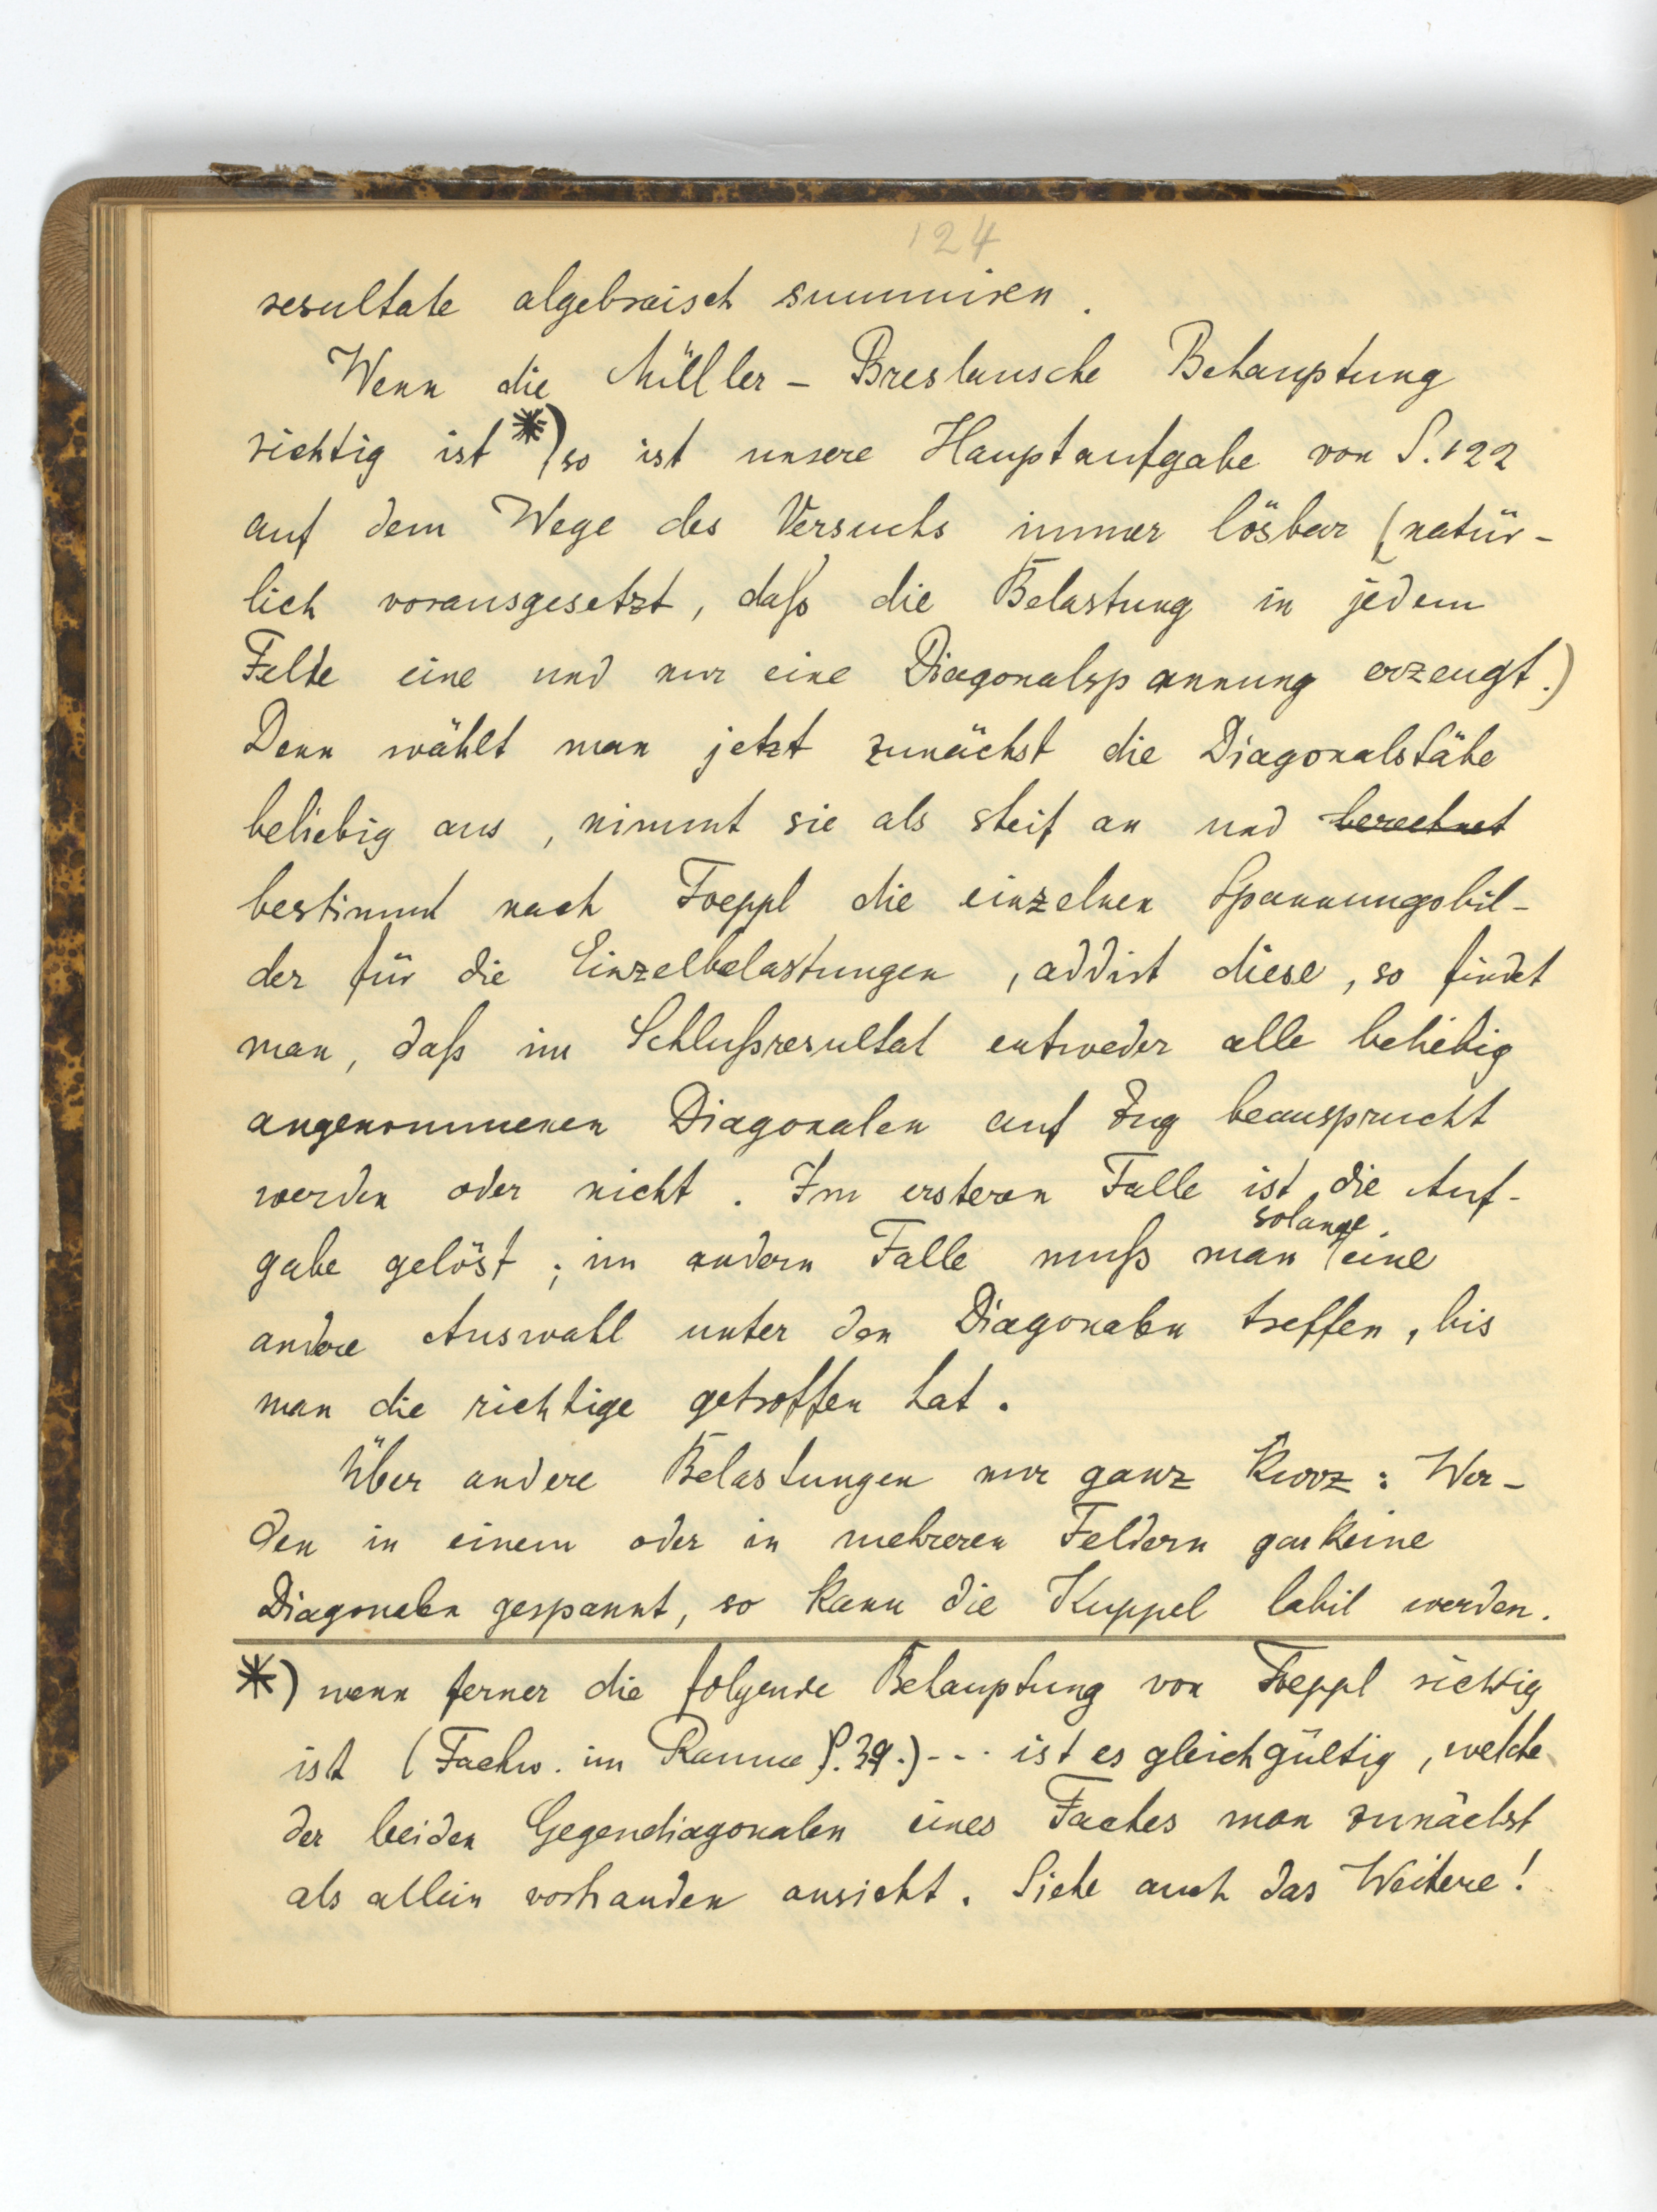 124
resultate algebraisch summiren.
Wenn die Müller-Breslausche Behauptung
richtig ist *) so ist unsere Hauptaufgabe von S. 122
auf dem Wege des Versuchs immer lösbar (natür-
lich vorausgesetzt, daß die Belastung in jedem
Felde eine und nur eine Diagonalspannung erzeugt.)
Denn wählt man jetzt zunächst die Diagonalstäbe
beliebig aus, nimmt sie als steif an und berechnet
bestimmt nach Foeppl die einzelnen Spannungsbil-
der für die Einzelbelastungen, addirt diese, so findet
man, daß im Schlußresultat entweder alle beliebig
angenommenen Diagonalen auf Zug beansprucht
werden oder nicht. Im ersteren Falle ist die Auf-
gabe gelöst; im andern Falle muß man solange eine
andere Auswahl unter den Diagonalen treffen, bis
man die richtige getroffen hat.
Über andere Belastungen nur ganz kurz: Wer-
den in einem oder in mehreren Feldern gar keine
Diagonalen gespannt, so kann die Kuppel labil werden.
*) wenn ferner die folgende Behauptung von Foeppl richtig
ist (Fachw. im Raume S. 39.) --- ist es gleichgültig, welche
der beiden Gegendiagonalen eines Faches man zunächst
als allein vorhanden ansieht. Siehe auch das Weitere!